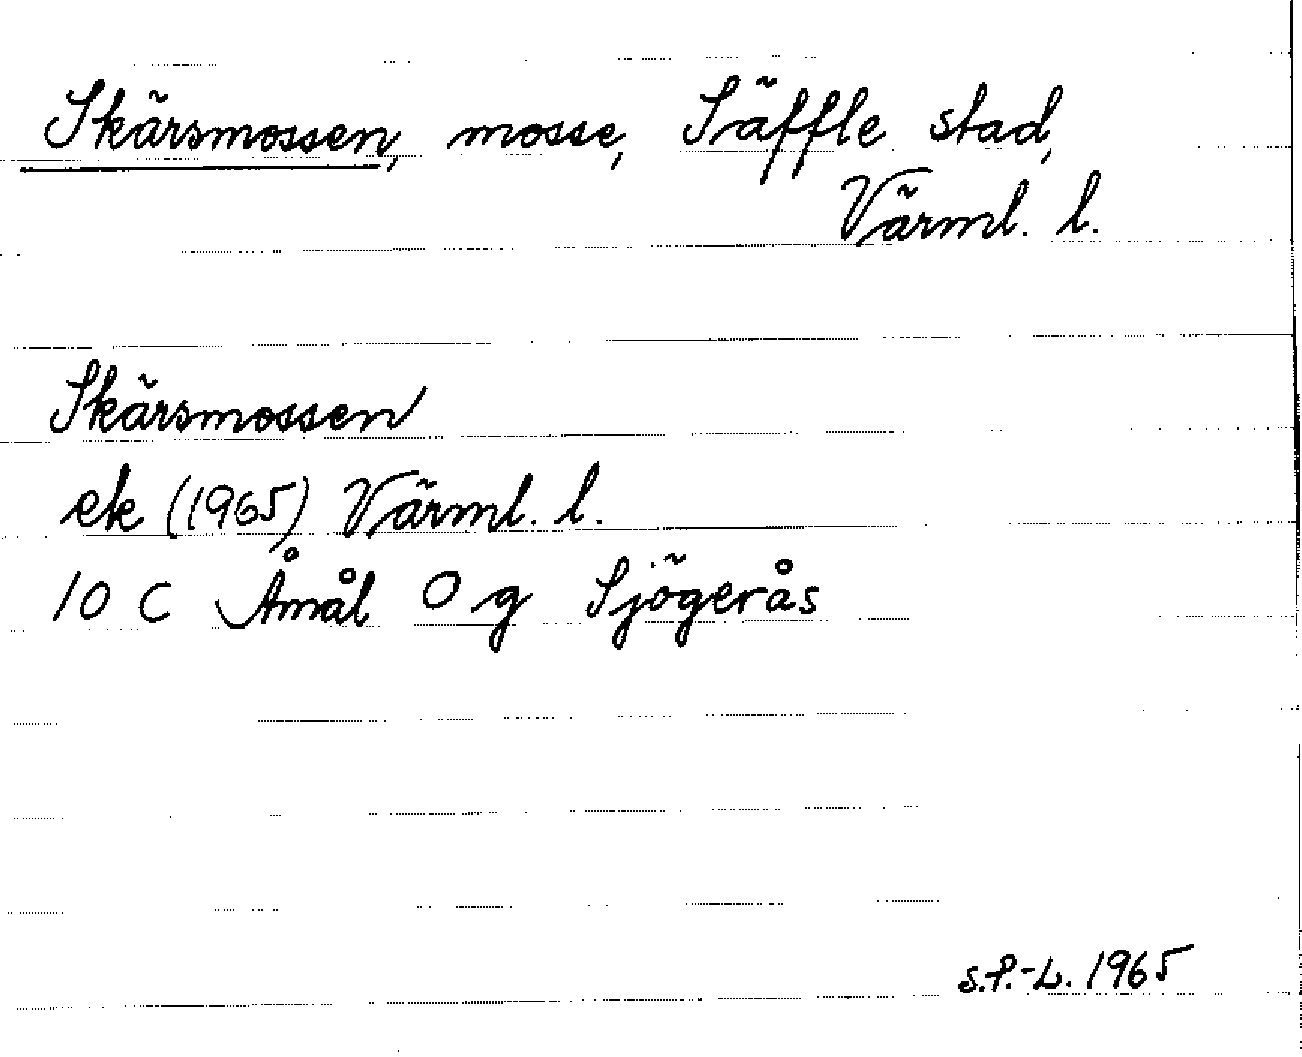 Skärsmossen, mosse, Säffle stad,
Värml. l.
Skärsmossen
ek (1965) Värml. l.
10 C Åmål O g Sjögerås
S.P.-L. 1965